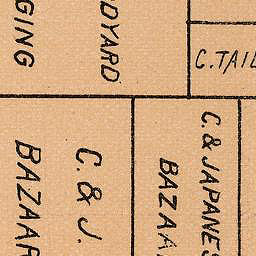 GING
DYARD
C. TAIL
C. & J.
BAZAAR
C. & JAPANES
BAZAA